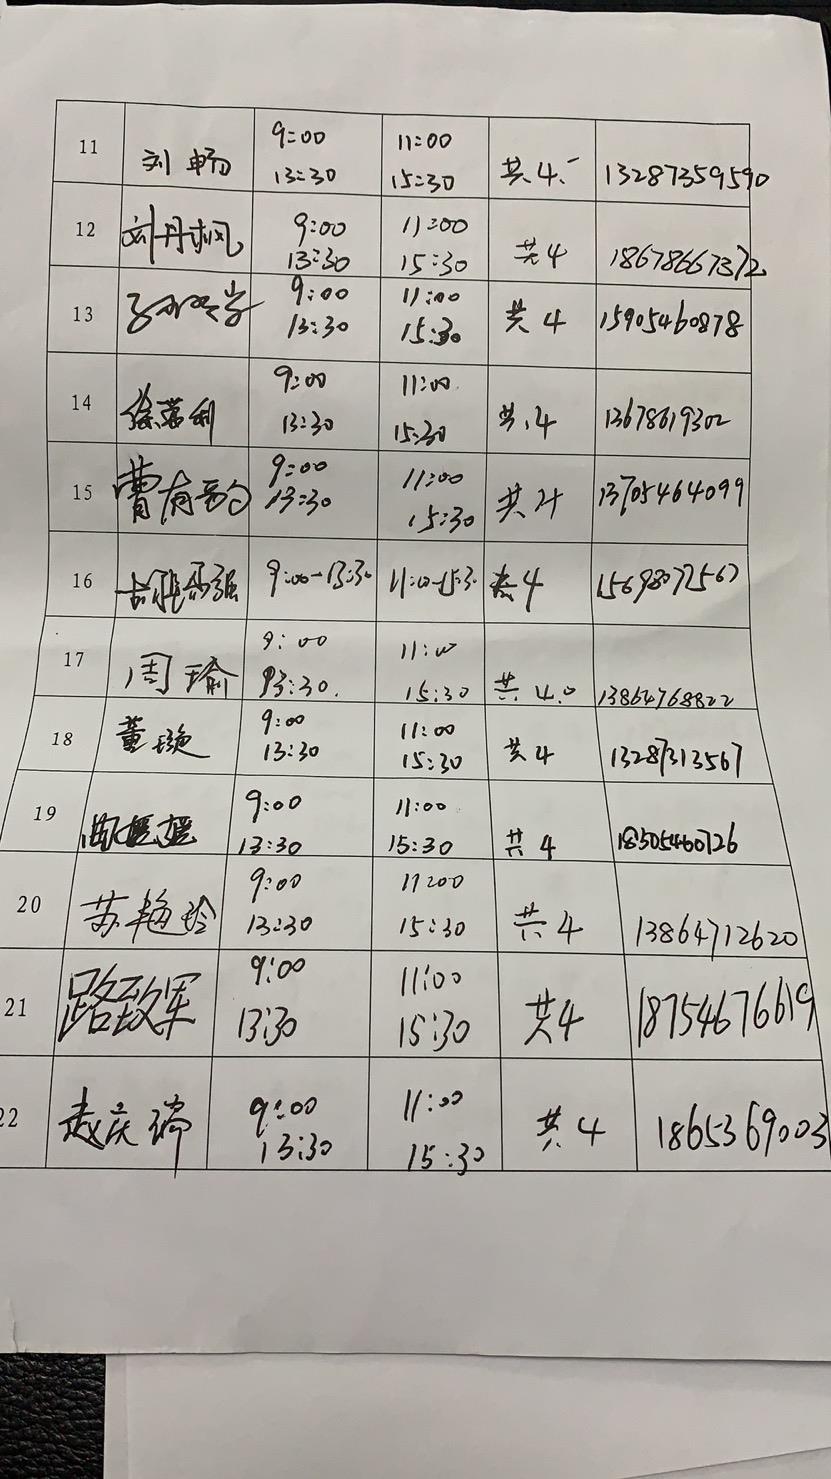 11 刘畅 9:00 11:00 共4. 13287359590
13:30 15:30
12 刘丹枫 9:00 11:00 共4 18678667372
13:30 15:30
13 9:00 11:00 共4 15905460878
13:30 15:30
14 徐蕊利 9:00 11:00 共.4 13678619302
13:30 15:30
15 曹有韵 9:00 11:00 共4 13705464099
13:30 15:30
16 9:00-13:30 11:00-15:3 共4 15698072567
17 周瑜 9:00 11:00 共4.0 13864768822
13:30. 15:30
18 董璇 9:00 11:00 共4 13287313567
13:30 15:30
19 曲媛媛 9:00 11:00 共4 18305460726
13:30 15:30
20 苏艳玲 9:00 11:00 共4 13864712620
13:30 15:30
21 路致军 9:00 11:00 共4 18754676619
13:30 15:30
22 赵庆瑞 9:00 11:00 共4 1865369003
13:30 15:30